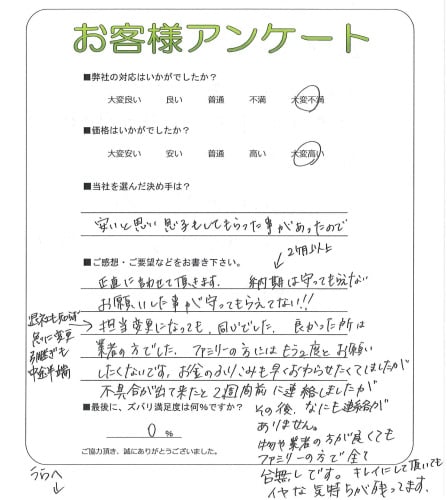 お客様アンケート
■弊社の対応はいかがでしたか?
大変良い 良い 普通 不満 大変不満
■価格はいかがでしたか?
大変安い 安い 普通 高い 大変高い
■当社を選んだ決め手は?
安いと思い 息子もしてもらった事があったので
2ケ月以上
■ご感想・ご要望などをお書き下さい。
正直に言わせて頂きます。 納期は守ってもらえない
お願いした事が守ってもらえてない!!
急に変更
引継ぎも
中途半端
→担当変更になっても、同じでした。良かった所は
業者の方でした。ファミリーの方にはもう2度とお願い
したくないです。お金のふりこみも早くおわらせてくしましたが
不具合が出て来たと2週間前に連絡しましたが
■最後に、ズバリ満足度は何%ですか?
0 %
ご協力頂き、誠にありがとうございました。
その後、なにも連絡が
ありません。
物や業者の方が良くても
ファミリーの方で全て
台無しです。キレイにして頂いても
イヤな気持ちが残ってます。
うらへ
↓